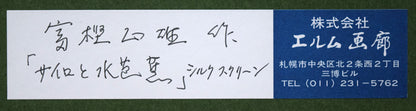 富樫正雄 作
「サイロと水芭蕉」シルクスクリーン
株式会社
エルム画廊
札幌市中央区北2条西2丁目
三博ビル
TEL (011) 231-5762